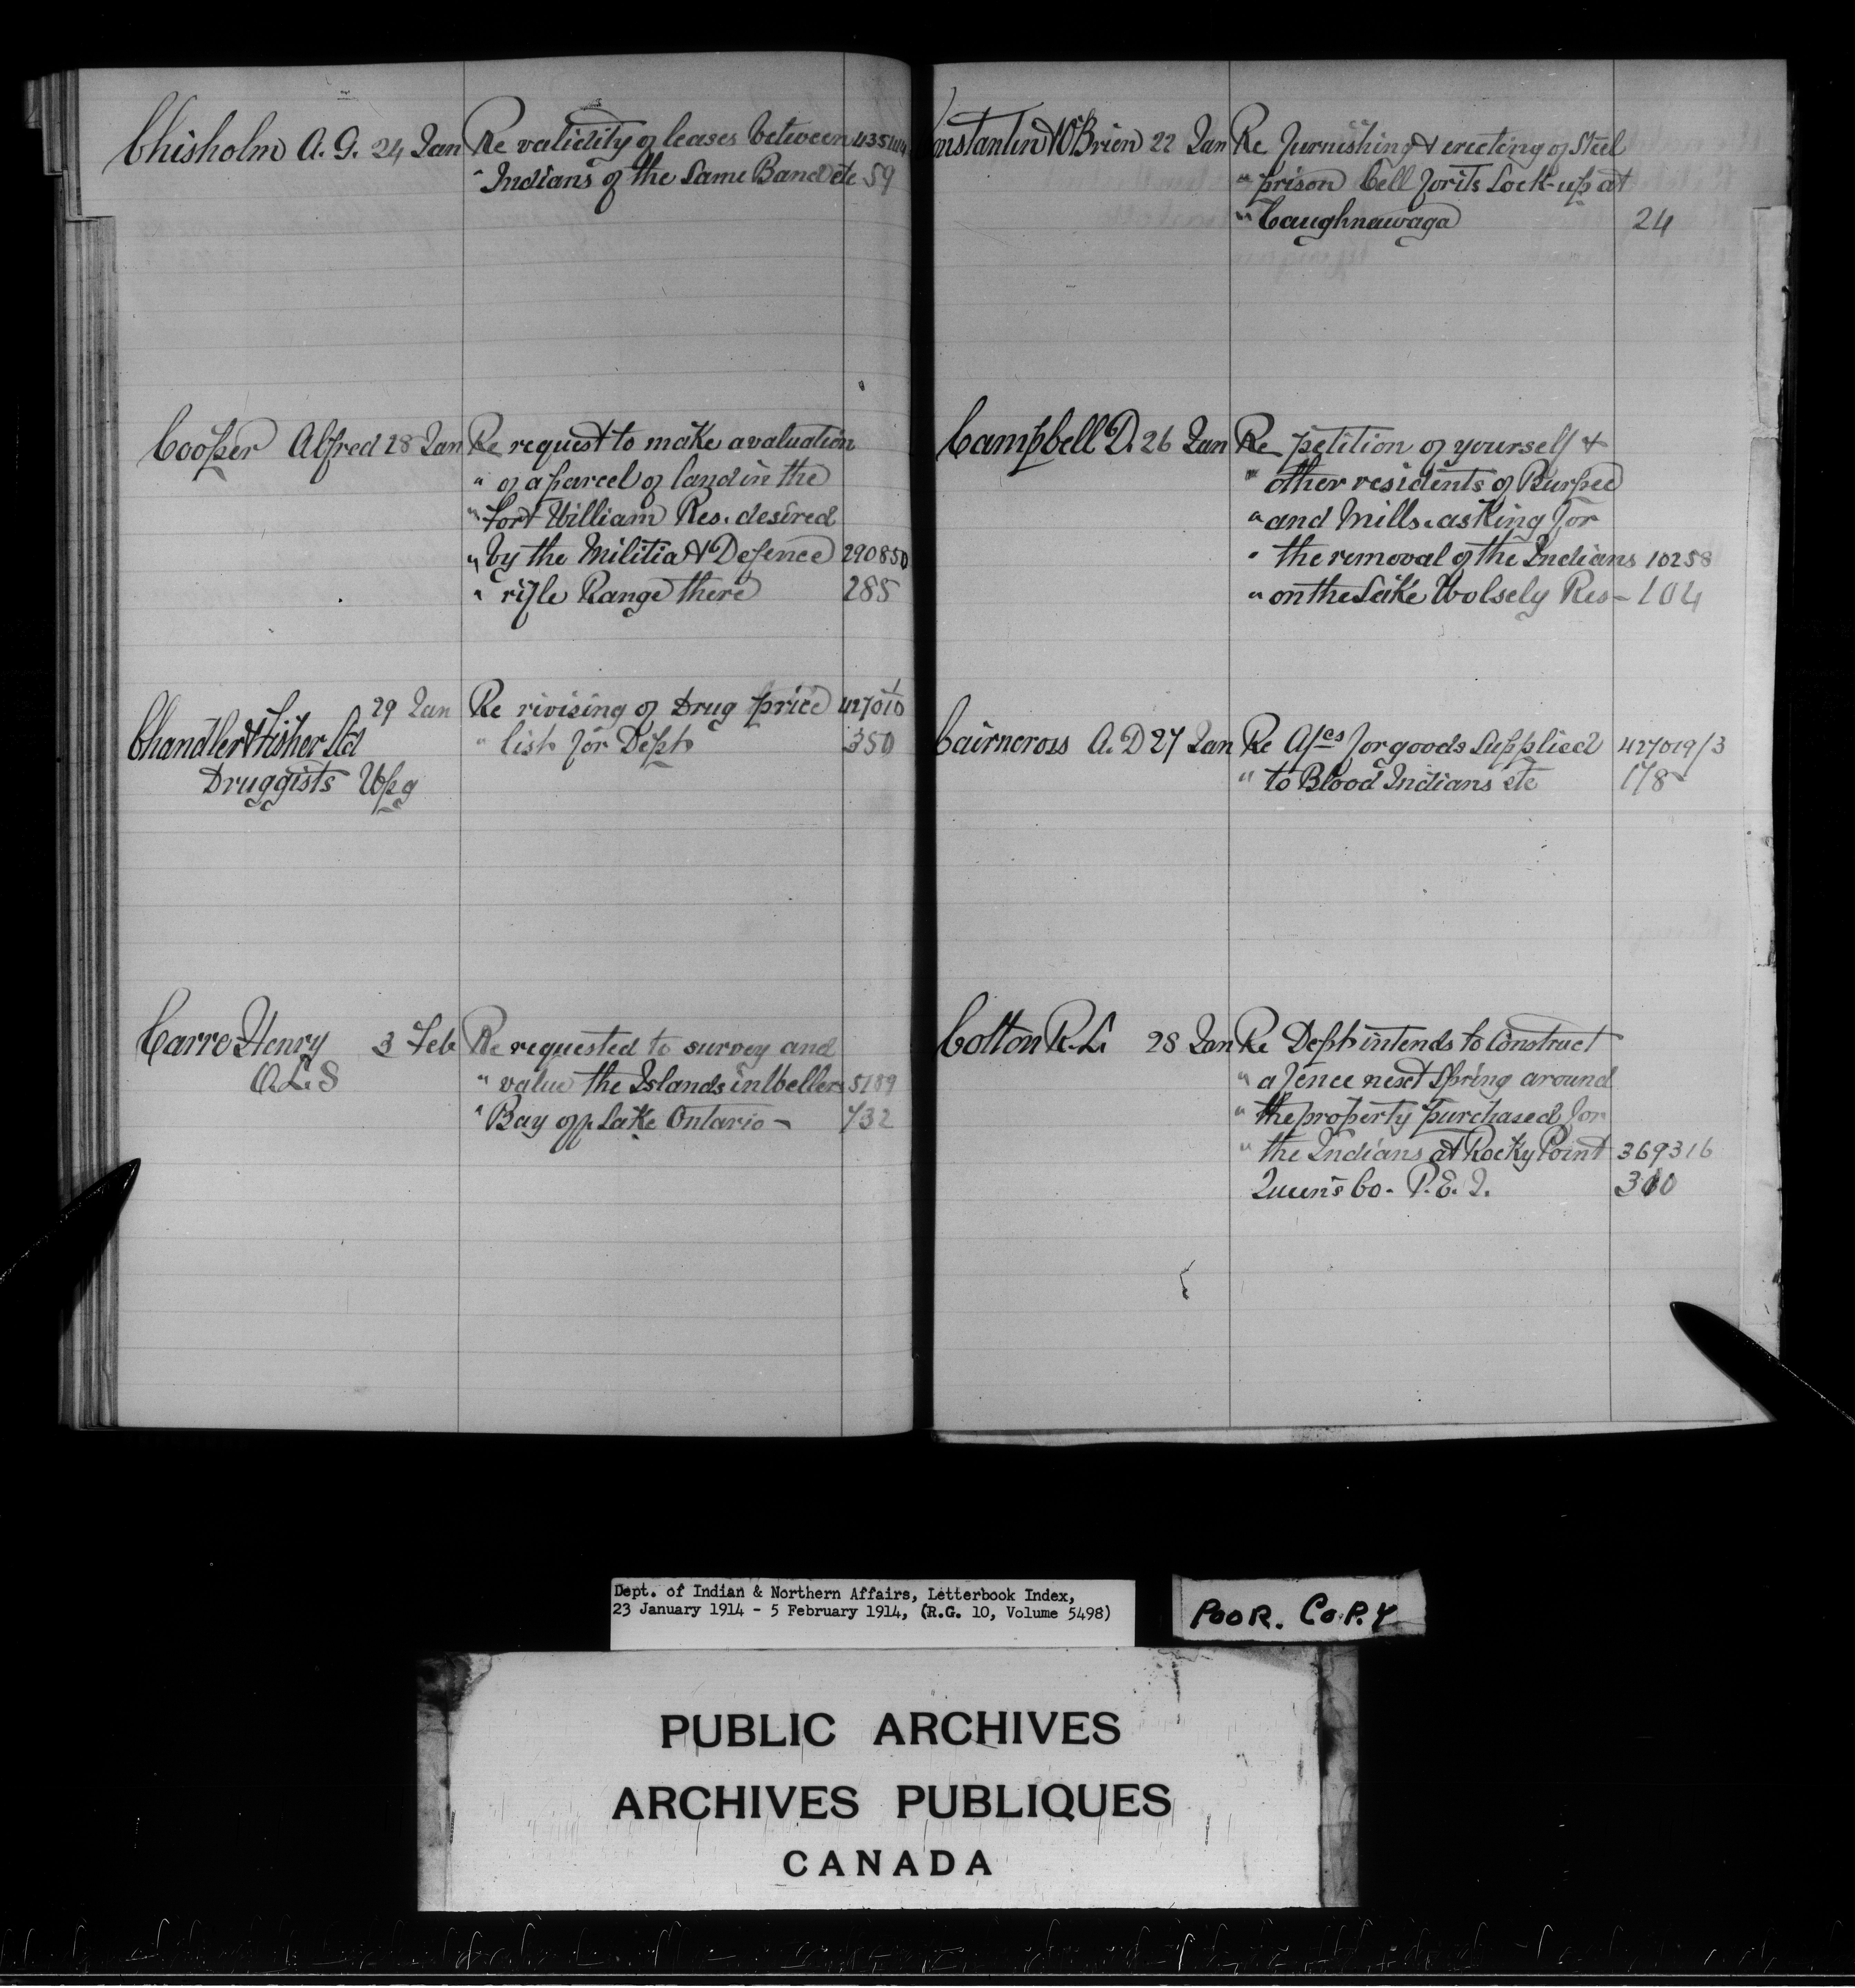 Chisholm A. G. 24 Jan Re validity of leases between
" Indians of the Same Band etc 59
Cooper Alfred 28 Jan Re request to make a valuation
" of a parcel of land in the
" Fort William Res. desired
" by the Militia & Defence 290850
" rifle Range there 285
29 Jan Re rivising of Drug price 427010/1
Chandler & Fisher Ltd " list for Dept 350
Druggists Wpg
Carre Henry 3 Feb Re requested to survey and
O.L.S " value the Islands in Wellers 5189
" Bay opp Lake Ontario - 732
Constantin & O'Brien 22 Jan Re furnishing & erecting of Steel
" prison Cell for its Lock-up at
" Caughnawaga 24
Campbell D. 26 Jan Re petition of yourself &
" other residents of Burpee
" and Mills. asking for
" the removal of the Indians 10258
" on the Lake Wolsely Res - 104
Cairncross A. D 27 Jan Re A/cs for goods Supplied 427019/3
" to Blood Indians etc 178
Cotton R. L. 28 Jan Re Dept intends to Construct
" a fence next Spring around
" the property purchased for
" the Indians at Rocky Point 369316
Queen's Co. P. E. I. 310
Dept. of Indian & Northern Affairs, Letterbook Index,
23 January 1914 - 5 February 1914, (R.G. 10, Volume 5498)
POOR. COPY
PUBLIC ARCHIVES
ARCHIVES PUBLIQUES
CANADA